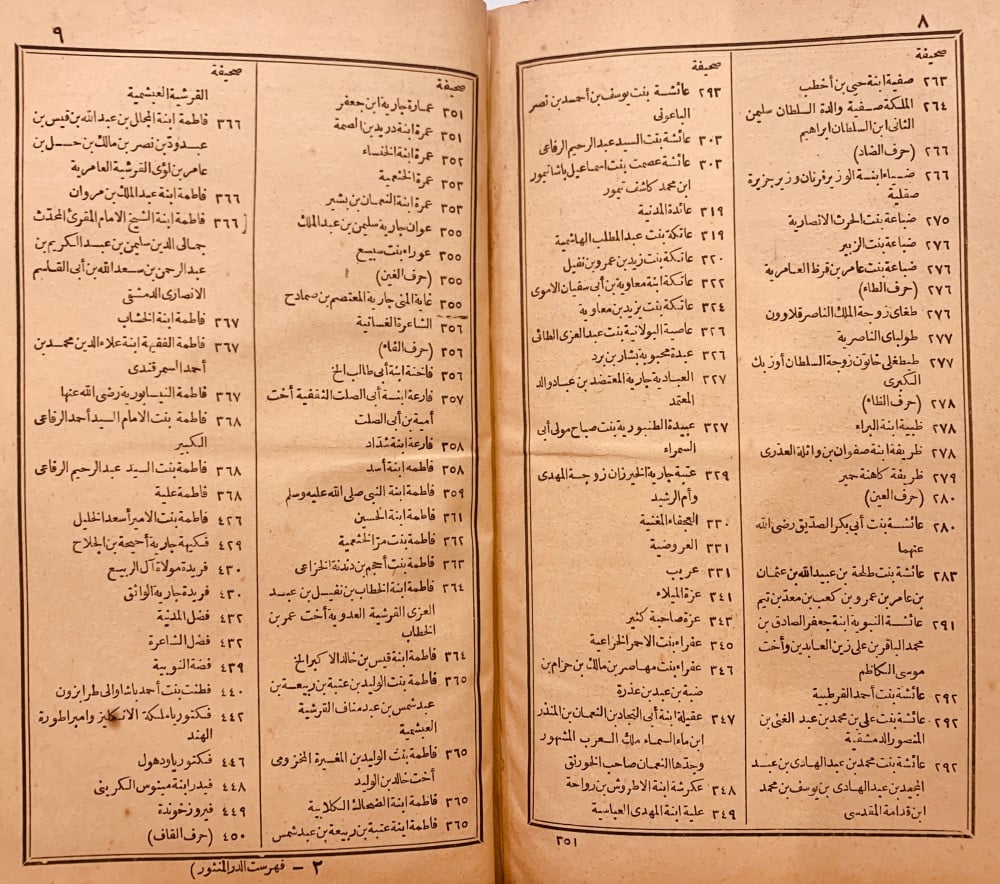 ٨
صحيفة
٢٦٣ صفية ابنة حيى بن أخطب
٢٦٤ الملكة صفية والدة السلطان سليمن
الثانى ابن السلطان ابراهيم
٢٦٦ (حرف الضاد)
٢٦٦ ضياء ابنة الوزير فرنان وزير جزيرة
صقلية
٢٧٥ ضباعة بنت الحرث الانصارية
٢٧٦ ضباعة بنت الزبير
٢٧٦ ضباعة بنت عامر بن قرظ العامرية
٢٧٦ (حرف الطاء)
٢٧٦ طغاى زوجة الملك الناصر قلاوون
٢٧٧ طولباى الناصرية
٢٧٧ طيطغلى خاتون زوجة السلطان أوزبك
الكبرى
٢٧٨ (حرف الظاء)
٢٧٨ ظبية ابنة البراء
٢٧٨ ظريفة ابنة صفوان بن واثلة العذرى
٢٧٩ ظريفة كاهنة حمير
٢٨٠ (حرف العين)
٢٨٠ عائشة بنت أبى بكر الصديق رضى الله
عنهما
٢٨٣ عائشة بنت طلحة بن عبيد الله بن عثمان
بن عامر بن عمرو بن كعب بن معد بن تيم
٢٩١ عائشة النبوية ابنة جعفر الصادق بن
محمد الباقر بن على زين العابدين وأخت
موسى الكاظم
٢٩٢ عائشة بنت أحمد القرطبية
٢٩٢ عائشة بنت على بن محمد بن عبد الغنى بن
المنصور الدمشقية
٢٩٢ عائشة بنت محمد بن عبد الهادى بن عبد
المجمد بن عبد الهادى بن يوسف بن محمد
ابن قدامة المقدسى
صحيفة
٢٩٣ عائشة بنت يوسف بن أحمد بن نصر
الباعونى
٣٠٣ عائشة بنت السيد عبد الرحيم الرفاعى
٣٠٣ عائشة عصمت بنت اسماعيل باشا تيمور
ابن محمد كاشف تيمور
٣١٩ عائدة المدنية
٣١٩ عاتكة بنت عبد المطلب الهاشمية
٣٢٠ عاتكة بنت زيد بن عمرو بن نفيل
٣٢٢ عاتكة ابنة معاوية بن أبى سفيان الاموى
٣٢٤ عاتكة بنت يزيد بن معاوية
٣٢٦ عاصية البولانية بنت عبد العزى الطائى
٣٢٦ عبدة محبوبة بشار بن برد
٣٢٧ العبادية جارية المعتضد بن عباد والد
المعتمد
٣٢٧ عبيدة الطنبورية بنت صباح مولى أبى
السمراء
٣٢٩ عتبة جارية الخيزران زوجة المهدى
وأم الرشيد
٣٣٠ العجفاء المغنية
٣٣١ العروضية
٣٣١ عريب
٣٤١ عزة الميلاء
٣٤٣ عزة صاحبة كثير
٣٤٥ عفراء بنت الاحمر الخزاعية
٣٤٦ عفراء بنت مهاصر بن مالك بن حزام بن
ضبة بن عبد بن عذرة
٣٤٧ عقيلة ابنة أبى النجاد بن النعمان بن المنذر
ابن ماء السماء ملك العرب المشهور
وجدها النعمان صاحب الخورنق
٣٤٨ عكرشة ابنة الاطروش بن رواحة
٣٤٩ علية ابنة المهدى العباسية
٣٥١
٩
صحيفة
٣٥١ عمارة جارية ابن جعفر
٣٥١ عمرة ابنة دريد بن الصمة
٣٥٢ عمرة ابنة الخنساء
٣٥٣ عمرة الخثعمية
٣٥٣ عمرة ابنة النعمان بن بشير
٣٥٥ عوان جارية سليمن بن عبد الملك
٣٥٥ عوراء بنت سبيع
٣٥٥ (حرف الغين)
٣٥٥ غاية المنى جارية المعتصم بن صمادح
٣٥٦ الشاعرة الغسانية
٣٥٦ (حرف الفاء)
٣٥٦ فاختة ابنة أبى طالب الخ
٣٥٧ فارعة ابنة أبى الصلت الثقفية أخت
أمية بن أبى الصلت
٣٥٨ فارعة ابنة شداد
٣٥٨ فاطمه ابنة أسد
٣٥٩ فاطمة ابنة النبى صلى الله عليه وسلم
٣٦١ فاطمة ابنة الحسين
٣٦٢ فاطمة بنت مر الخثعمية
٣٦٣ فاطمة بنت أحجم بن دندنة الخزاعى
٣٦٤ فاطمة ابنة الخطاب بن نفيل بن عبد
العزى القرشية العدوية أخت عمر بن
الخطاب
٣٦٤ فاطمة ابنة قيس بن خالد الاكبر الخ
٣٦٥ فاطمة بنت الوليد بن عتبة بن ربيعة بن
عبد شمس بن عبد مناف القرشية
العشمية
٣٦٥ فاطمة بنت الوليد بن المغيرة المخزومى
أخت خالد بن الوليد
٣٦٥ فاطمة ابنة الضحاك الكلابية
٣٦٥ فاطمة ابنة عتبة بن ربيعة بن عبد شمس
صحيفة
القرشية العبشمية
٣٦٦ فاطمة ابنة المجلل بن عبد الله بن قيس بن
عبدود بن نصر بن مالك بن حسل بن
عامر بن لؤى القرشية العامرية
٣٦٦ فاطمة ابنة عبد الملك بن مروان
٣٦٦ فاطمة ابنة الشيخ الامام المقرئ المحدث
جمالى الدين سليمن بن عبد الكريم بن
عبد الرحمن بن سعد الله بن أبى القاسم
الانصارى الدمشقى
٣٦٧ فاطمة ابنة الخشاب
٣٦٧ فاطمة الفقيهة ابنة علاء الدين محمد بن
أحمد السمرقندى
٣٦٧ فاطمة النيسابورية رضى الله عنها
٣٦٨ فاطمة بنت الامام السيد أحمد الرفاعى
الكبير
٣٦٨ فاطمة بنت السيد عبد الرحيم الرفاعى
٣٦٨ فاطمة علية
٤٢٦ فاطمة بنت الامير أسعد الخليل
٤٢٩ فكيهة جارية أحيحة بن الجلاح
٤٣٠ فريدة مولاة آل الربيع
٤٣٠ فريدة جارية الواثق
٤٣٢ فضل المدنية
٤٣٢ فضل الشاعرة
٤٣٩ فضة النوبية
٤٤٠ فطنت بنت أحمد باشا والى طرابزون
٤٤٢ فكتوريا ملكة الانكليز وامبراطورة
الهند
٤٤٦ فكتوريا ودهول
٤٤٨ فيدر ابنة مينوس الكريتى
٤٤٩ فيروز خوندة
٤٥٠ (حرف القاف)
٢ - فهرست الدر المنثور)